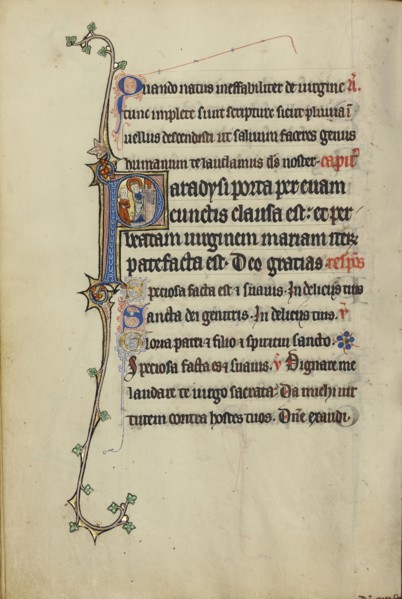 Quando natus ineffabiliter de uirgine A.
tunc implete sunt scripture sicut pluuia ī
uellus descendisti ut saluum faceres genus
humanum te laudamus d̄s noster. capitl̄
Paradysi porta per euam
cunctis clausa est: et per
beatam uirginem mariam iter̄
patefacta est. Deo gratias. respōs
Speciosa facta es ⁊ suauis. In deliciis tuis
Sancta dei genitrix. In deliciis tuis. V̄
Gloria patri ⁊ filio ⁊ spiritui sancto.
Speciosa facta es ⁊ suauis. V̄ Dignare me
laudare te uirgo sacrata. Da michi uir
tutem contra hostes tuos. Dn̄e exaudi.